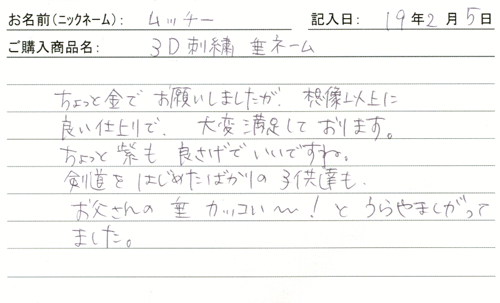 お名前(ニックネーム): ムッチー 記入日: 19年2月5日
ご購入商品名: 3D刺繍 垂ネーム
ちょっと金で お願いしましたが、想像以上に
良い仕上りで、大変満足しております。
ちょっと紫も 良さげでいいですね。
剣道を はじめたばかりの子供達も、
お父さんの 垂 カッコいい〜!と うらやましがって
ました。